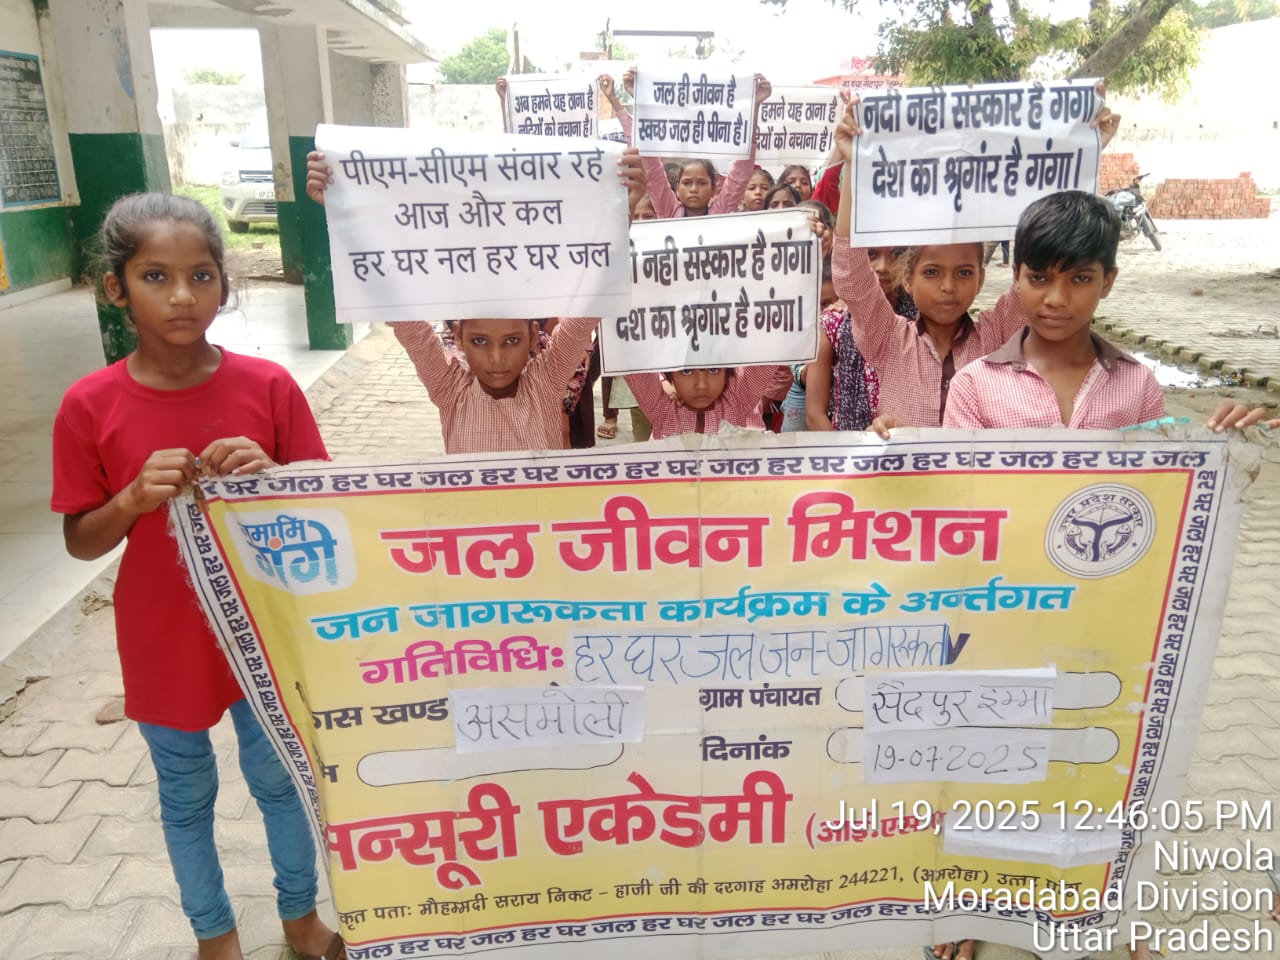 अब हमने यह ठाना है
नदियों को बचाना है।
जल ही जीवन है
स्वच्छ जल ही पीना है।
हमने यह ठाना है
दियों को बचाना है।
नदी नही संस्कार है गंगा
देश का श्रृगांर है गंगा।
पीएम-सीएम संवार रहे
आज और कल
हर घर नल हर घर जल
नही संस्कार है गंगा
देश का श्रृगांर है गंगा।
घर जल हर घर जल हर घर जल हर घर जल हर घर जल हर घर जल हर घर जल
नमामि
गंगे
जल जीवन मिशन
उत्तर प्रदेश सरकार
जन जागरूकता कार्यक्रम के अर्न्तगत
गतिविधिः हर घर जल जन-जागरूकता
कास खण्ड असमोली
ग्राम पंचायत सैदपुर इम्मा
दिनांक 19-07-2025
मन्सूरी एकेडमी (आई.एस.
कृत पताः मौहम्मदी सराय निकट - हाजी जी की दरगाह अमरोहा 244221, (अमरोहा) उत्तर
जल हर घर जल हर घर जल हर घर जल हर घर जल हर घर जल
Jul 19, 2025 12:46:05 PM
Niwola
Moradabad Division
Uttar Pradesh